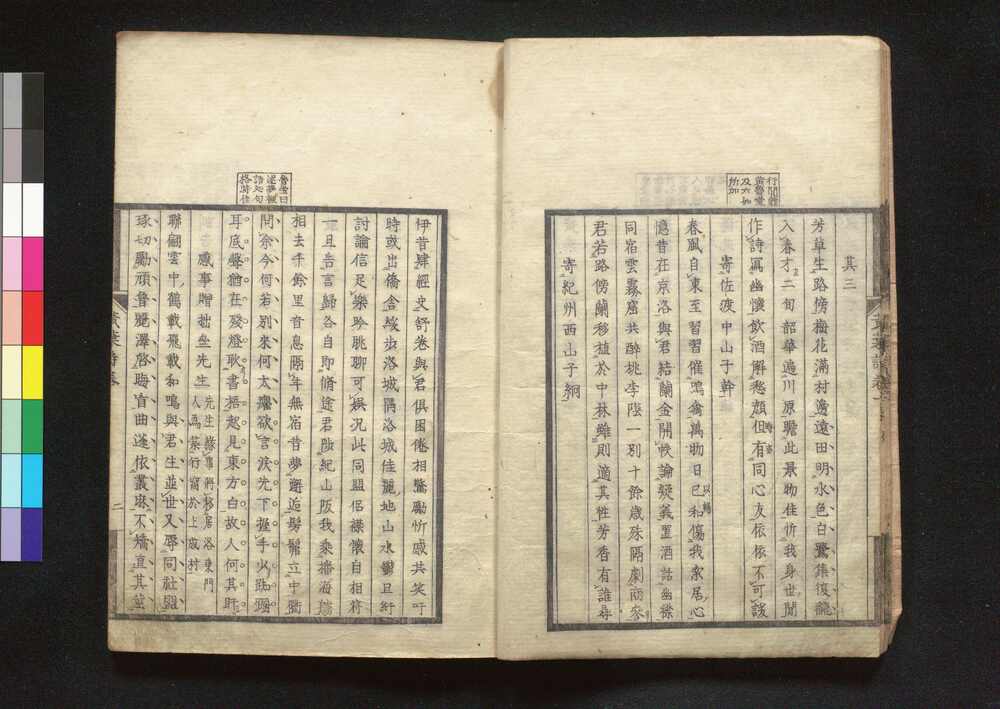 其三
芳草生路傍梅花滿村邊遠田明水色白鷺集復飛
入春才二旬韶華遍川原瞻此景物佳忻我身世閒
作詩寫幽懷飲酒解愁顏但有同心友依依不可諼
寄佐渡中山子幹
春風自東至習習催鳴禽萬物日已和傷我索居心
憶昔在京洛與君結蘭金開帙論疑義置酒話幽襟
同宿雲霧窟共酔桃李陰一別十餘歳殊隔劇商參
君若路傍蘭移植於中林雖則適其性芳香有誰尋
寄紀州西山子絅
伊昔肆經史舒卷與君俱困倦相驚勵忻戚共笑吁
時或出僑舍緩步洛城隅洛城佳麗地山水鬱且紆
討論信足樂吟眺聊可娯況此同盟侶襟懷自相符
一旦告言歸各自即脩途君陟紀山阪我乘播海艫
相去千餘里音息隔年無宿昔夢邂逅髣髴立中衢
問余今何若別來何太癯欲言淚先下握手以踟躕
耳底聲猶在殘燈耿書梧起見東方白故人何其旴
感事贈拙坐先生
聯翩雲中鶴載飛載和鳴與君生並世又辱同社盟
琢切勵頑魯麗澤啓晦盲曲蓬依叢麻不矯直其莖
二